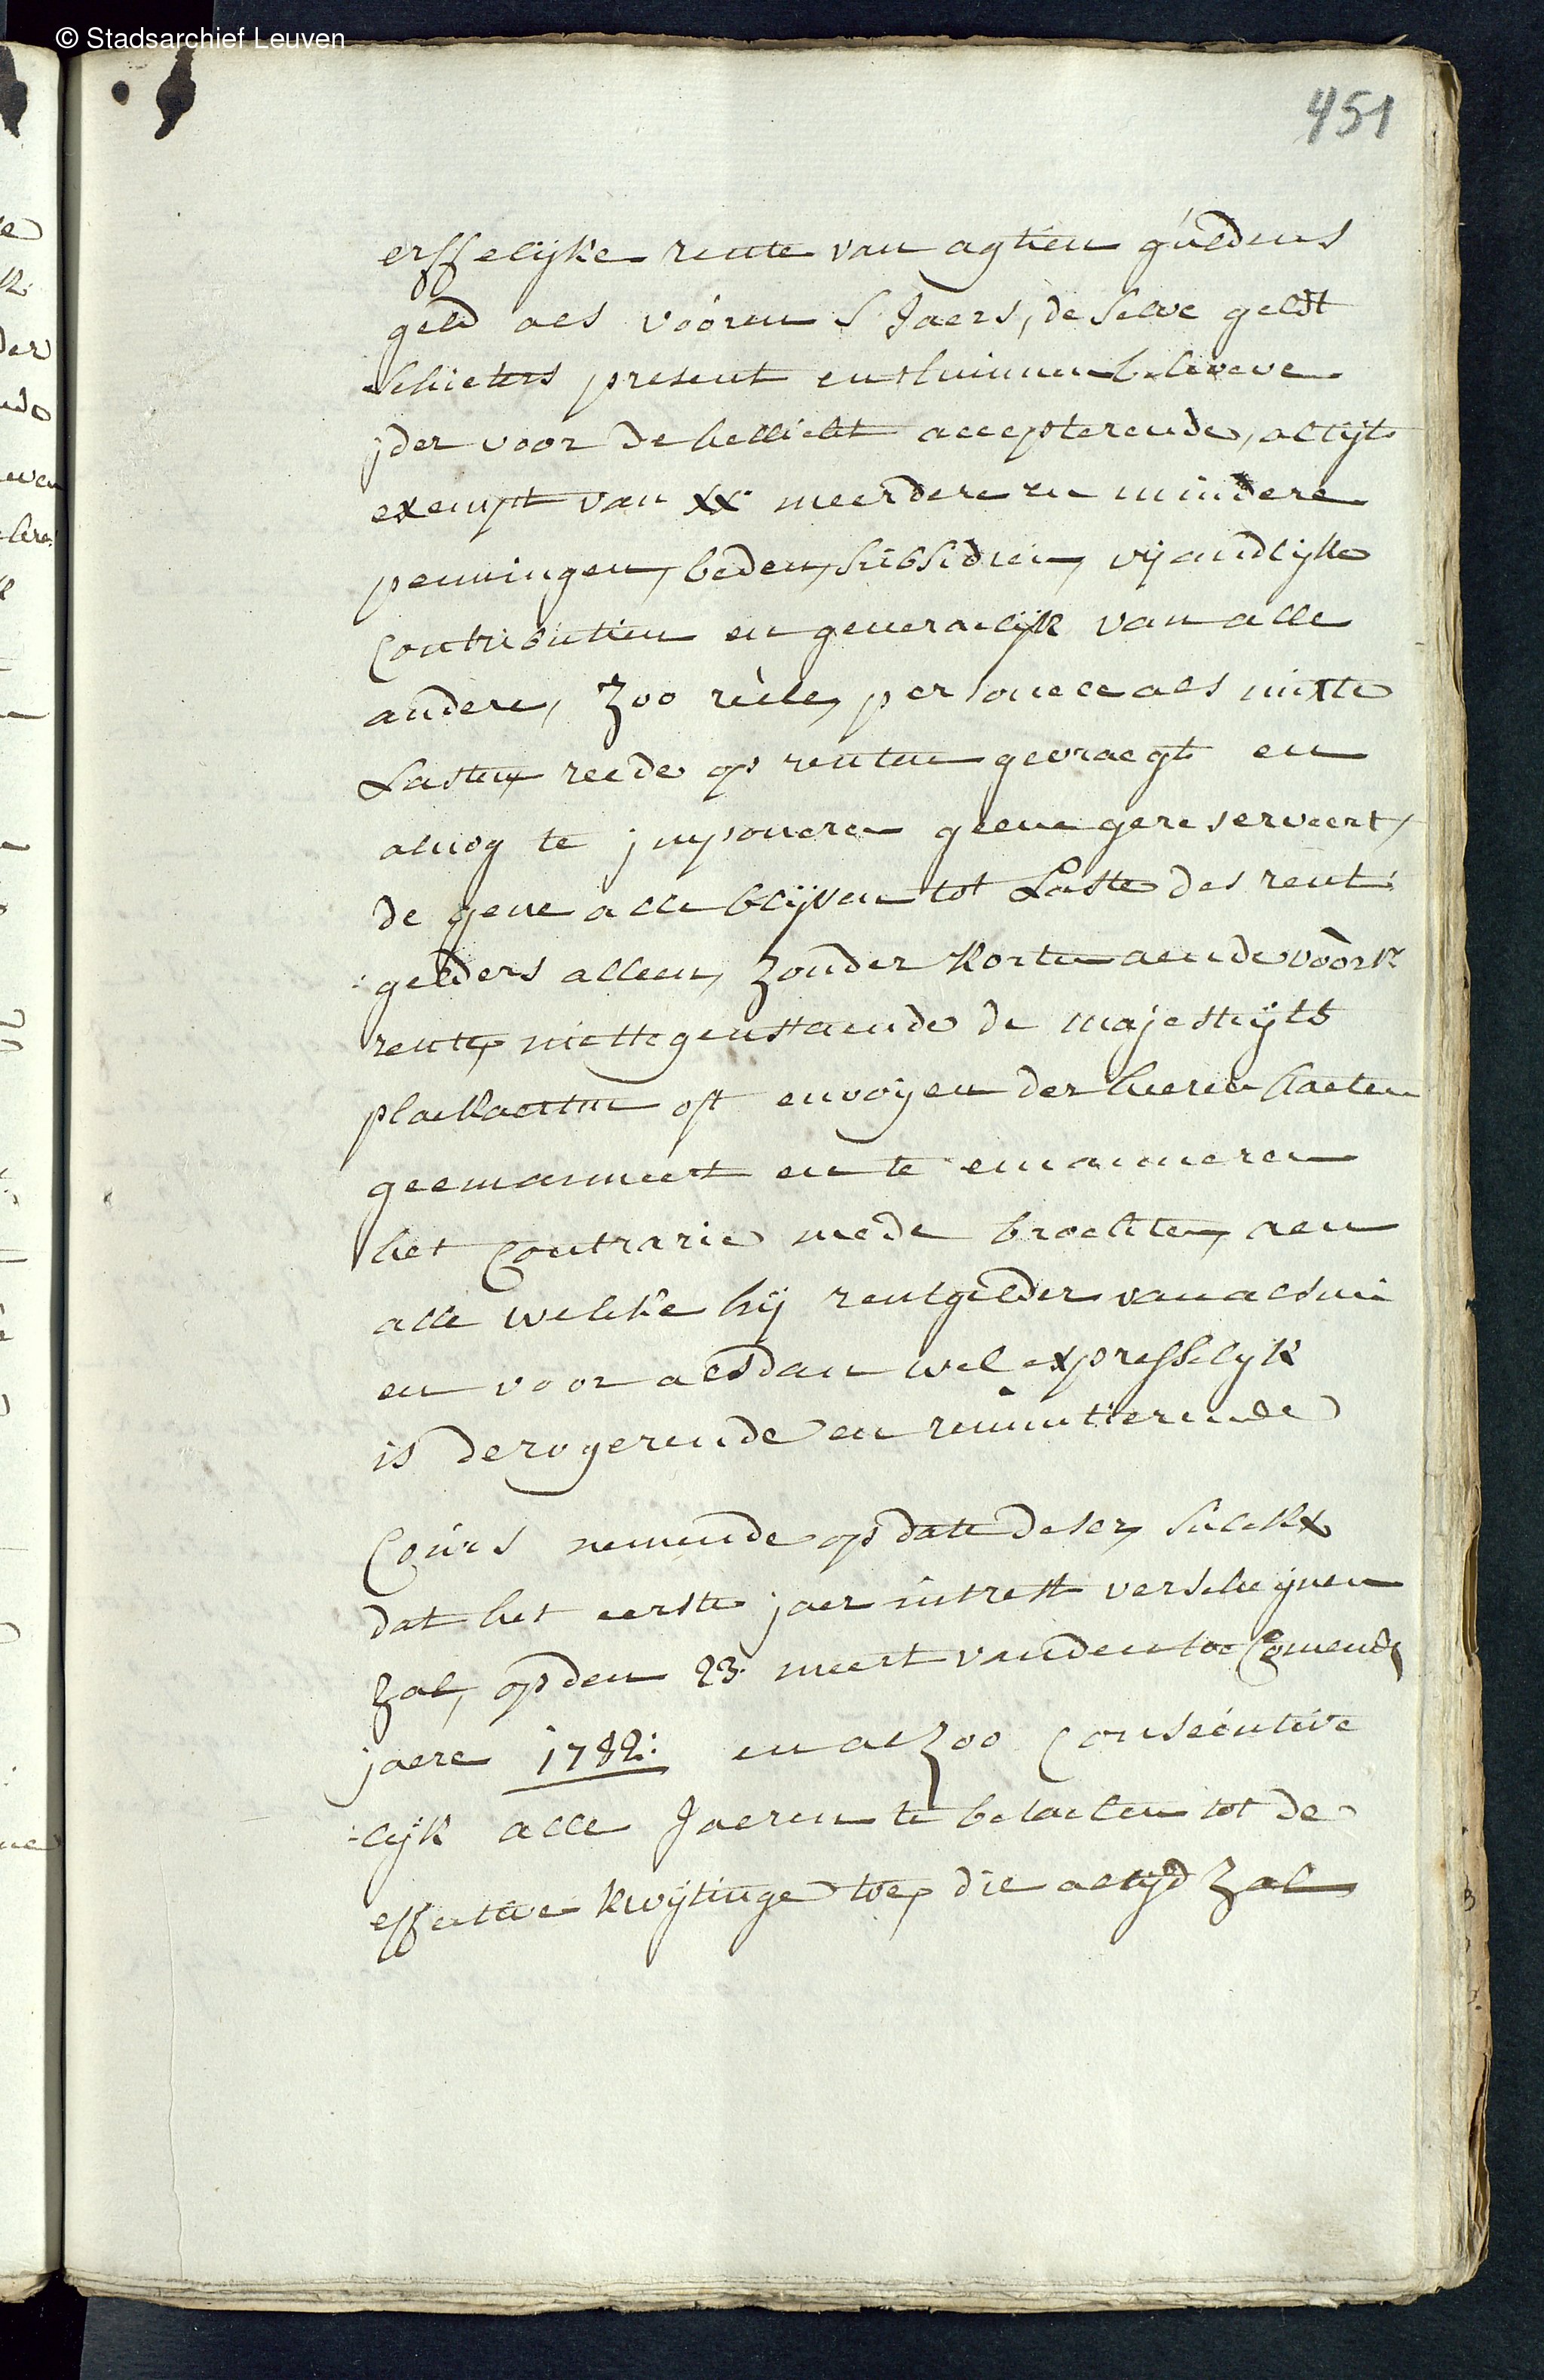 © Stadsarchief Leuven
451
erffelijke rente van agtien guldens
geld als vóóren S Jaers, de selve geldt
schieters present en t'hunnen behoeve
jder voor de hellicht accepterende, altijt
exempt van xx.e meerdere en mindere
penningen, beden, subsidien, vijandlijke
Contributien en generalijk van alle
andere, Zoo reële, personele als mixte
Lasten, reede op renten gevraegt en
alnog te jmponeren geene gereserveert,
de gene alle blijven tot Laste des rent
:gelders alleen, Zonder korten aende voors:
rente, niettegenstaende de majesteijts
plackaerten oft envoijen der heeren staeten
geemanneert en te emanneren
het Contrarie mede brochten, aen
alle welcke hij rentgelder van als nu
en voor alsdan wel expresselijk
is derogerende en renuntierende
Cours nemende op date deser, sulckx
dat het eerste jaer intrest verscheijnen
Zal, op den 23. meert vanden toe Comende
jaere 1782: en alzoo Consécutive
:lijk alle Jaeren te betaelen tot de
effective kwijtinge toe, die altyd Zal